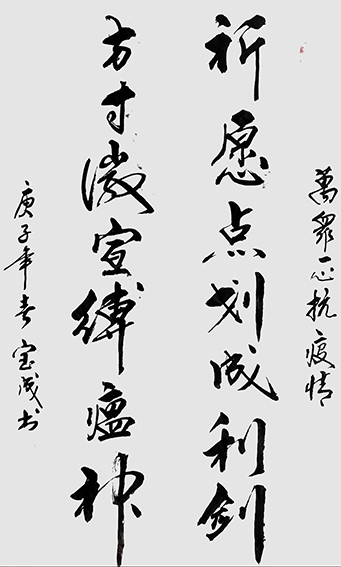 萬眾一心抗疫情
祈愿点划成利剑
方寸微宣缚瘟神
庚子年春宝成书